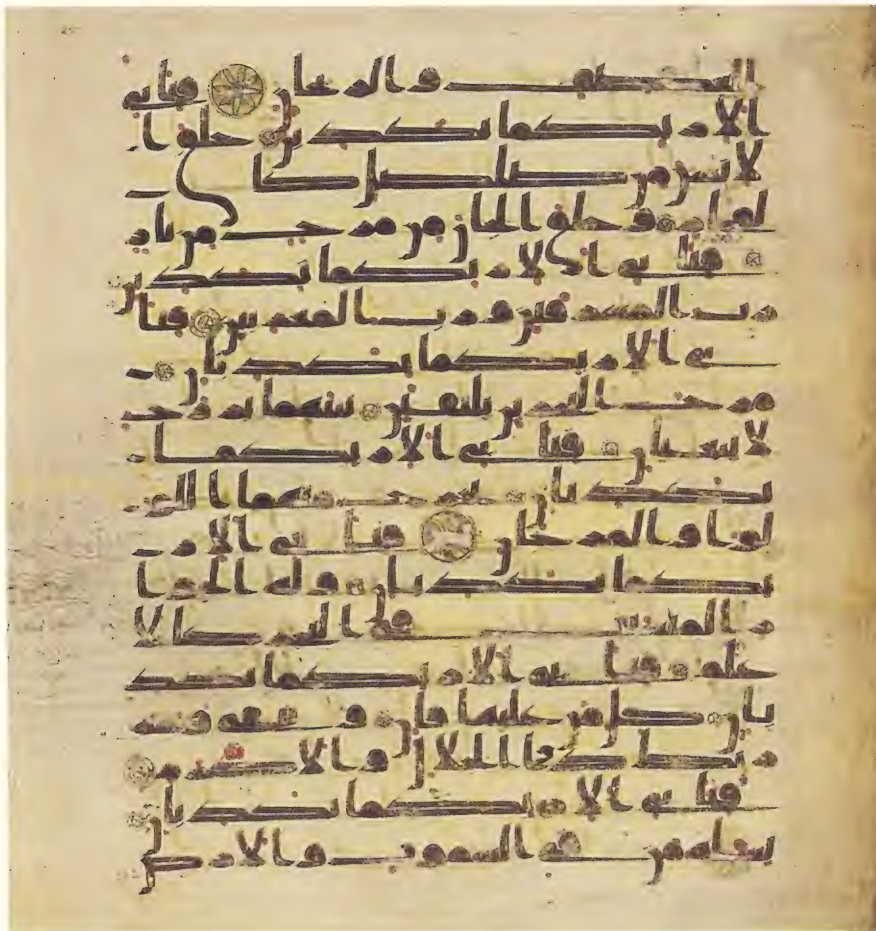 العصف والريحان فباى
الا ربكما تكذبن خلق ا
لانسن من صلصل كا
لفخار وخلق الجان من مرج من نار
فباى الا ربكما تكذبن
رب المشرقين ورب المغربين فبا
ى الا ربكما تكذبان
مرج البحرين يلتقين بينهما برزخ
لا يبغيان فباى الا ربكما
تكذبان يخرج منهما اللو
لوا والمرجان فباى الا
ربكما تكذبان وله الجوا
ر المنشت فى البحر كالا
علم فباى الا ربكما تكذ
بان كل من عليها فان ويبقى وجه
ربك ذو الجلل والاكرم
فباى الا ربكما تكذبان
يسله من فى السموت والارض كل